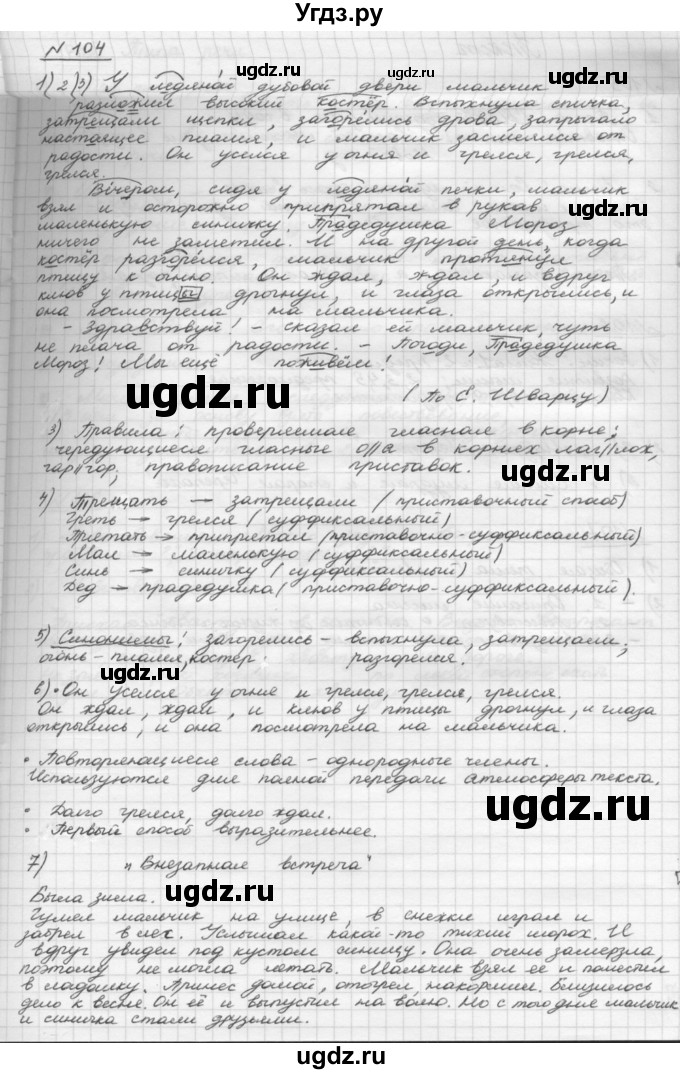 Угдз.ру
№ 104
1) 2) 3) У ледяной дубовой двери мальчик
разложил высокий костёр. Вспыхнула спичка,
затрещали щепки, загорелись дрова, запрыгало
настоящее пламя, и мальчик засмеялся от
радости. Он уселся у огня и грелся, грелся,
грелся.
Вечером, сидя у ледяной печки, мальчик
взял и осторожно припрятал в рукав
маленькую синичку. Прадедушка Мороз
ничего не заметил. И на другой день, когда
костёр разгорелся, мальчик протянул
птицу к огню. Он ждал, ждал, и вдруг
клюв у птицы дрогнул, и глаза открылись, и
она посмотрела на мальчика.
- Здравствуй! - сказал ей мальчик, чуть
не плача от радости. - Погоди, Прадедушка
Мороз! Мы ещё поживём!
(По Е. Шварцу)
3) Правила: проверяемые гласные в корне;
чередующиеся гласные о//а в корнях лаг//лож,
гар//гор; правописание приставок.
4) Трещать → затрещали (приставочный способ)
Греть → грелся (суффиксальный)
Прятать → припрятал (приставочно-суффиксальный)
Мал → маленькую (суффиксальный)
Синь → синичку (суффиксальный)
Дед → прадедушка (приставочно-суффиксальный).
5) Синонимы: загорелись - вспыхнула, затрещали;
огонь - пламя, костёр разгорелся.
6) • Он уселся у огня и грелся, грелся, грелся.
Он ждал, ждал, и клюв у птицы дрогнул, и глаза
открылись, и она посмотрела на мальчика.
• Повторяющиеся слова - однородные члены.
Используются для полной передачи атмосферы текста.
• Долго грелся, долго ждал.
• Первый способ выразительнее.
7) "Внезапная встреча"
Была зима.
Гулял мальчик на улице, в снежки играл и
забрёл в лес. Услышал какой-то тихий шорох. И
вдруг увидел под кустом синицу. Она очень замёрзла,
поэтому не могла летать. Мальчик взял её и поместил
в ладошку. Принёс домой, отогрел, накормил. Близилось
дело к весне. Он её и выпустил на волю. Но с того дня мальчик
и синичка стали друзьями.
ugdz.ru
ugdz.ru
ugdz.ru
ugdz.ru
ugdz.ru
ugdz.ru
ugdz.ru
ugdz.ru
ugdz.ru
ugdz.ru
ugdz.ru